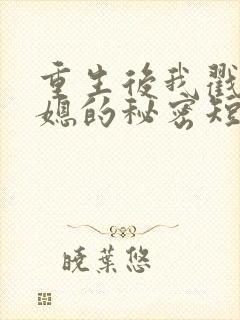 重生後我戳
媳的秘密短
曉葉悠